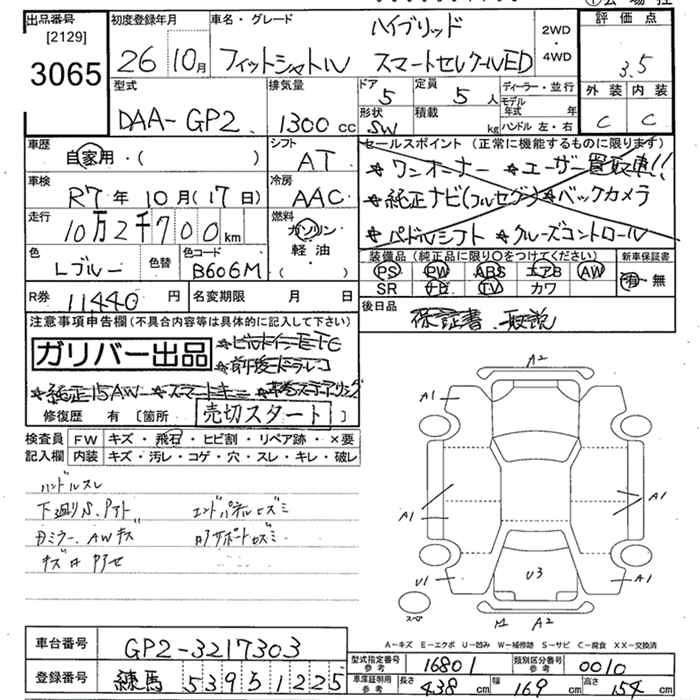 出品番号 初度登録年月 車名・グレード ハイブリッド 2WD・4WD 評価点
[2129]
3065 26 10月 フィットシャトル スマートセレクールED 3.5
型式 排気量 ドア 5 定員 5人 ディーラー・並行 外装 内装
DAA-GP2 1300cc 形状 SW 積載 kg モデル年式 年 ハンドル 左・右 C C
車歴 自家用・( ) シフト AT セールスポイント (正常に機能するものに限ります)
★ワンオーナー ★ユーザー買取車!!
車検 R7年10月(17日) 冷房 AAC ★純正ナビ(フルセグ) ★バックカメラ
走行 10万2千700km 燃料 ガソリン ★パドルシフト ★クルーズコントロール
軽油
( )
色 Lブルー 色替 色コード B606M 装備品 (純正品に限り○をつけてください) 新車保証書
PS PW ABS エアB AW 有・無
SR ナビ TV カワ
R券 11440円 名変期限 月 日 後日品 保証書、取説
注意事項申告欄 (不具合内容等は具体的に記入して下さい)
ガリバー出品 ★ビルトインETC
★前後ドラレコ
★純正15AW ★スマートキー ★革巻ステアリング
修復歴 有 [箇所 売切スタート ]
検査員 FW キズ・飛石・ヒビ割・リペア跡・×要
記入欄 内装 キズ・汚レ・コゲ・穴・スレ・キレ・破レ
ハンドルスレ
下廻りS、アト エンドパネルヒズミ
ロミラー、AWキズ
A2
A1
A1 A1
U1 U3 A1
スペア M A2
A-キズ E-エクボ U-凹み W-補修跡 S-サビ C-腐食 XX-交換済
車台番号 GP2-3217303
型式指定番号 参考 16801 類別区分番号 参考 0010
登録番号 練馬 539 51225
車庫証明用 参考 長さ 438cm 幅 169cm 高さ 154cm